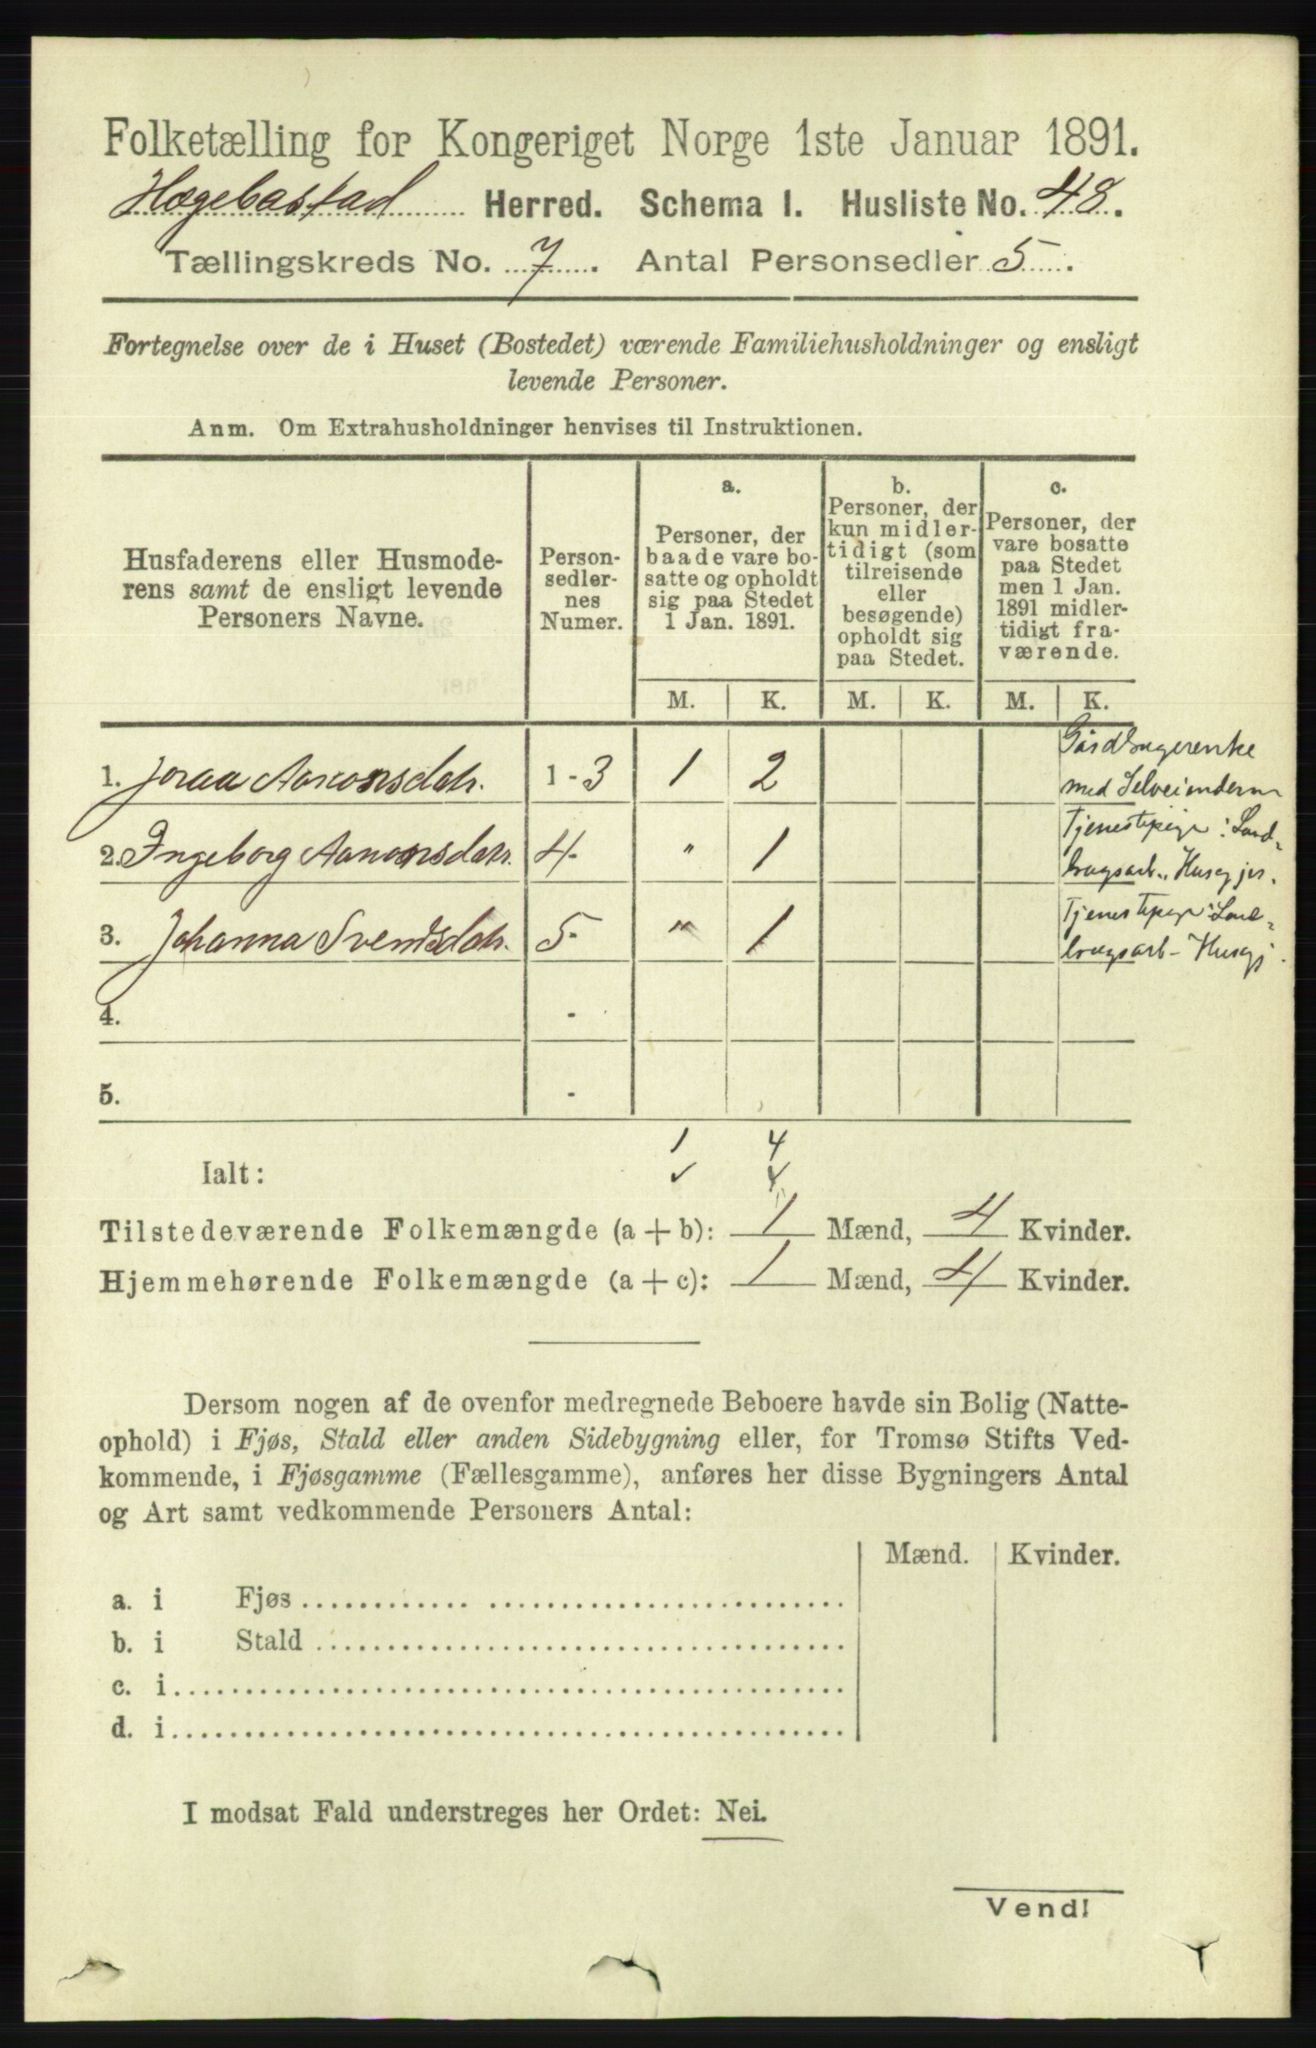 Folketælling for Kongeriget Norge 1ste Januar 1891.
Hægebostad Herred. Schema I. Husliste No. 48.
Tællingskreds No. 7. Antal Personsedler 5.
Fortegnelse over de i Huset (Bostedet) værende Familiehusholdninger og ensligt
levende Personer.
Anm. Om Extrahusholdninger henvises til Instruktionen.
Husfaderens eller Husmode-
rens samt de ensligt levende
Personers Navne.
Person-
sedler-
nes
Numer.
a.
Personer, der
baade vare bo-
satte og opholdt
sig paa Stedet
1 Jan. 1891.
b.
Personer, der
kun midler-
tidigt (som
tilreisende
eller
besøgende)
opholdt sig
paa Stedet.
c.
Personer, der
vare bosatte
paa Stedet
men 1 Jan.
1891 midler-
tidigt fra-
værende.
M. K. M. K. M. K.
1. Joraa Aanonsdatr. 1 - 3 1 2
Gårdbrugerenke
med Selveiendom
2. Ingeborg Aanonsdatr. 4 - " 1
Tjenestepige: Land-
brugsarb., Husgjer.
3. Johanna Svendsdatr. 5 - " 1
Tjenestepige: Land-
brugsarb - Husgj.
4. -
5. -
1 4
Ialt: ✓ 4
Tilstedeværende Folkemængde (a + b): 1 Mænd, 4 Kvinder.
Hjemmehørende Folkemængde (a + c): 1 Mænd, 4 Kvinder.
Dersom nogen af de ovenfor medregnede Beboere havde sin Bolig (Natte-
ophold) i Fjøs, Stald eller anden Sidebygning eller, for Tromsø Stifts Ved-
kommende, i Fjøsgamme (Fællesgamme), anføres her disse Bygningers Antal
og Art samt vedkommende Personers Antal:
Mænd. Kvinder.
a. i Fjøs
b. i Stald
c. i
d. i
I modsat Fald understreges her Ordet: Nei.
Vend!